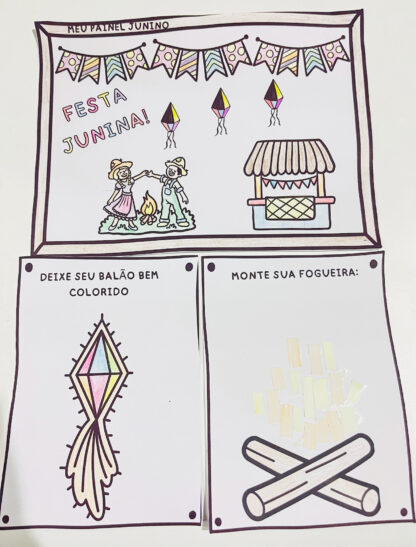 MEU PAINEL JUNINO
FESTA
JUNINA!
DEIXE SEU BALÃO BEM
COLORIDO
MONTE SUA FOGUEIRA: